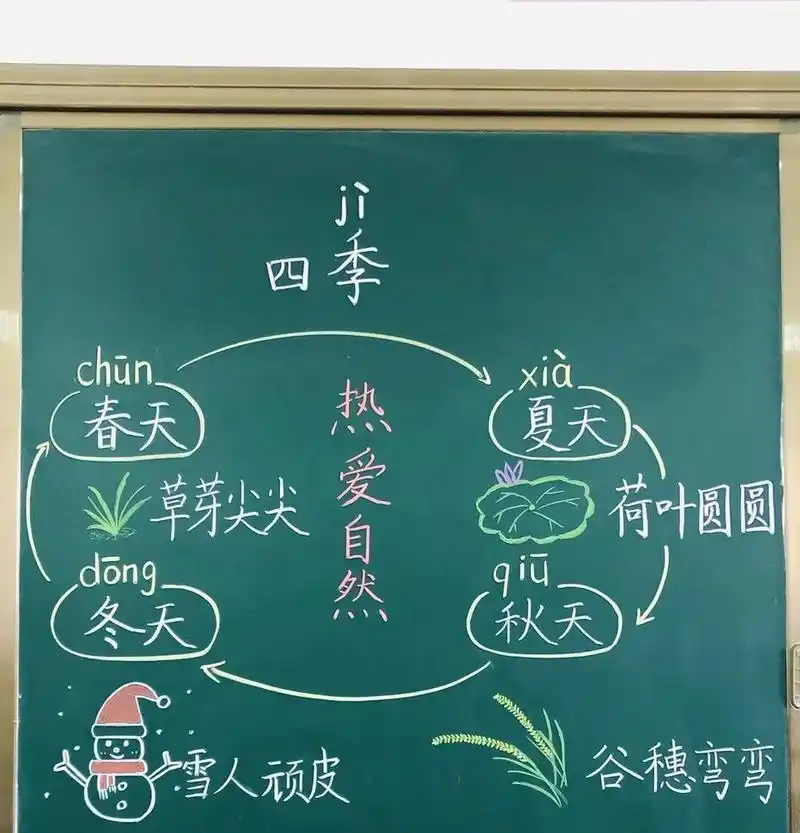 jì
四季
chūn
春天
xià
夏天
热爱自然
草芽尖尖
荷叶圆圆
dōng
冬天
qiū
秋天
雪人顽皮
谷穗弯弯